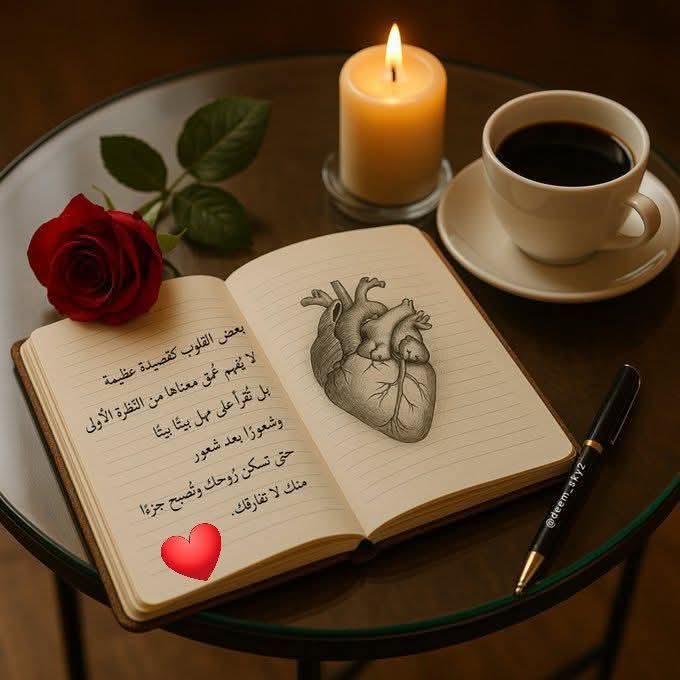 بعض القلوب كقصيدة عظيمة
لا يُفهم عُمق معناها من النظرة الأولى
بل تُقرأ على مهل بيتًا بيتًا
وشعورًا بعد شعور
حتى تسكن رُوحك وتُصبح جزءًا
منك لا تفارقك.
@deem_sky2